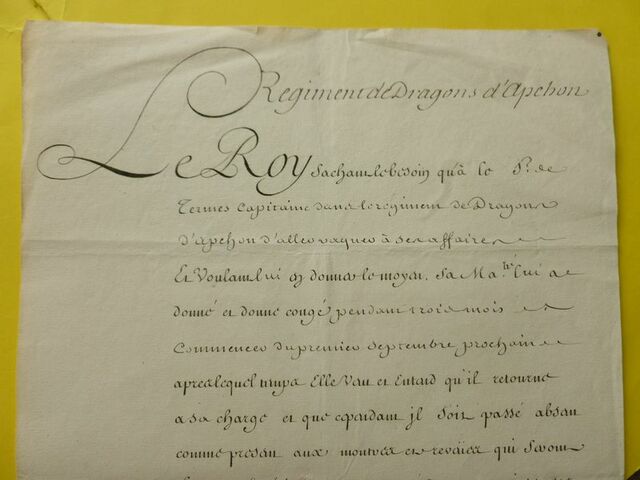 Regiment de Dragons d'Apchon
Le Roy Sachant le besoin qu'à le Sr. de
Termes Capitaine dans le regiment de Dragons
d'Apchon d'aller vaquer à ses affaires
Et Voulant lui en donner le moyen. Sa Ma.té lui a
donné et donne congé pendant trois mois
Commencer du premier Septembre prochain
apres lequel temps Elle Veut et Entend qu'il retourne
a sa charge et que cependant jl soit passé absent
comme present aux montres et reveües qui seront